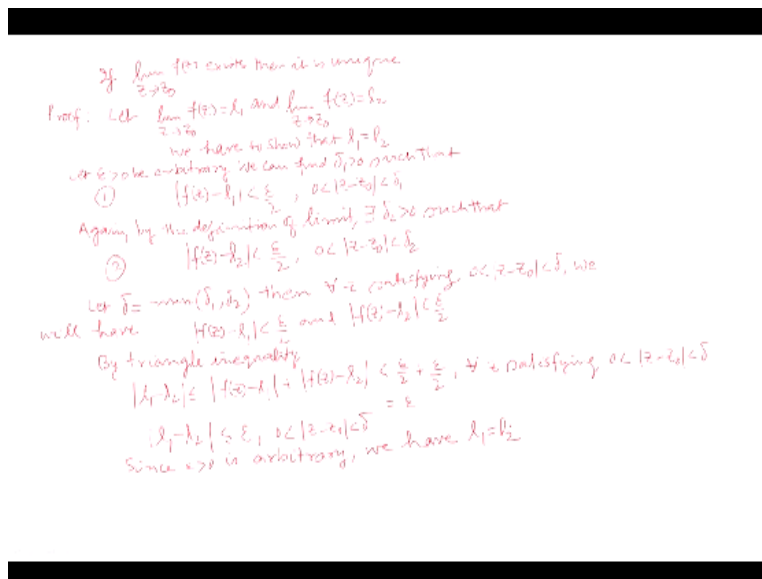 If lim f(z) exists then it is unique.
z→z₀
Proof: Let lim f(z)=l₁ and lim f(z)=l₂
z→z₀ z→z₀
we have to show that l₁=l₂
Let ε>0 be arbitrary we can find δ₁>0 such that
① |f(z)-l₁|< ε/2 , 0<|z-z₀|<δ₁
Again, by the definition of limit, ∃ δ₂>0 such that
② |f(z)-l₂|< ε/2 , 0<|z-z₀|<δ₂
Let δ= min(δ₁,δ₂) then ∀ z satisfying 0<|z-z₀|<δ, we
will have |f(z)-l₁|< ε/2 and |f(z)-l₂|< ε/2
By triangle inequality
|l₁-l₂|≤ |f(z)-l₁|+|f(z)-l₂| < ε/2 + ε/2 , ∀ z satisfying 0<|z-z₀|<δ
= ε
|l₁-l₂| ≤ ε, 0<|z-z₀|<δ
Since ε>0 is arbitrary, we have l₁=l₂